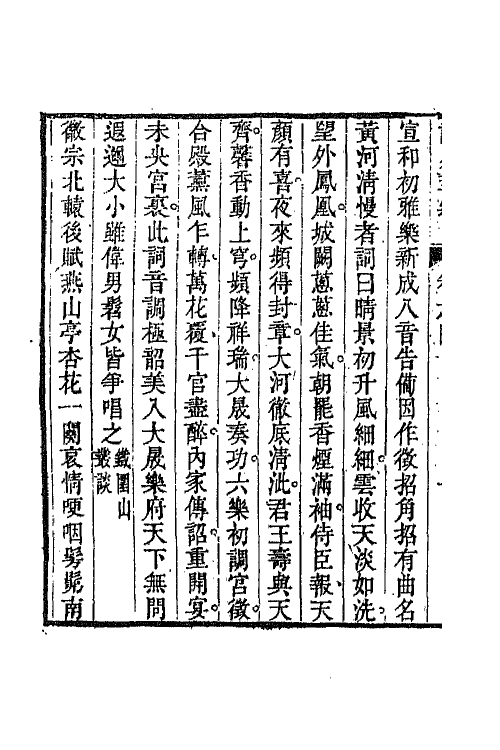 宣和初雅樂新成八音告備因作徵招角招有曲名
黃河清慢者詞曰晴景初升風細細雲收天淡如洗。
望外鳳凰城闕蔥蔥佳氣。朝罷香煙滿袖。侍臣報天
顏有喜。夜來頻得封章。大河徹底清泚。君王壽與天
齊。馨香動上穹。頻降祥瑞。大晟奏功。六樂初調宮徵。
合殿薰風乍轉。萬花覆千官盡醉。內家傳詔重開宴。
未央宮裏。此詞音調極韶美入大晟樂府天下無問
遐邇大小雖偉男髫女皆爭唱之 鐵圍山叢談
徽宗北轅後賦燕山亭杏花一闋哀情哽咽髣髴南